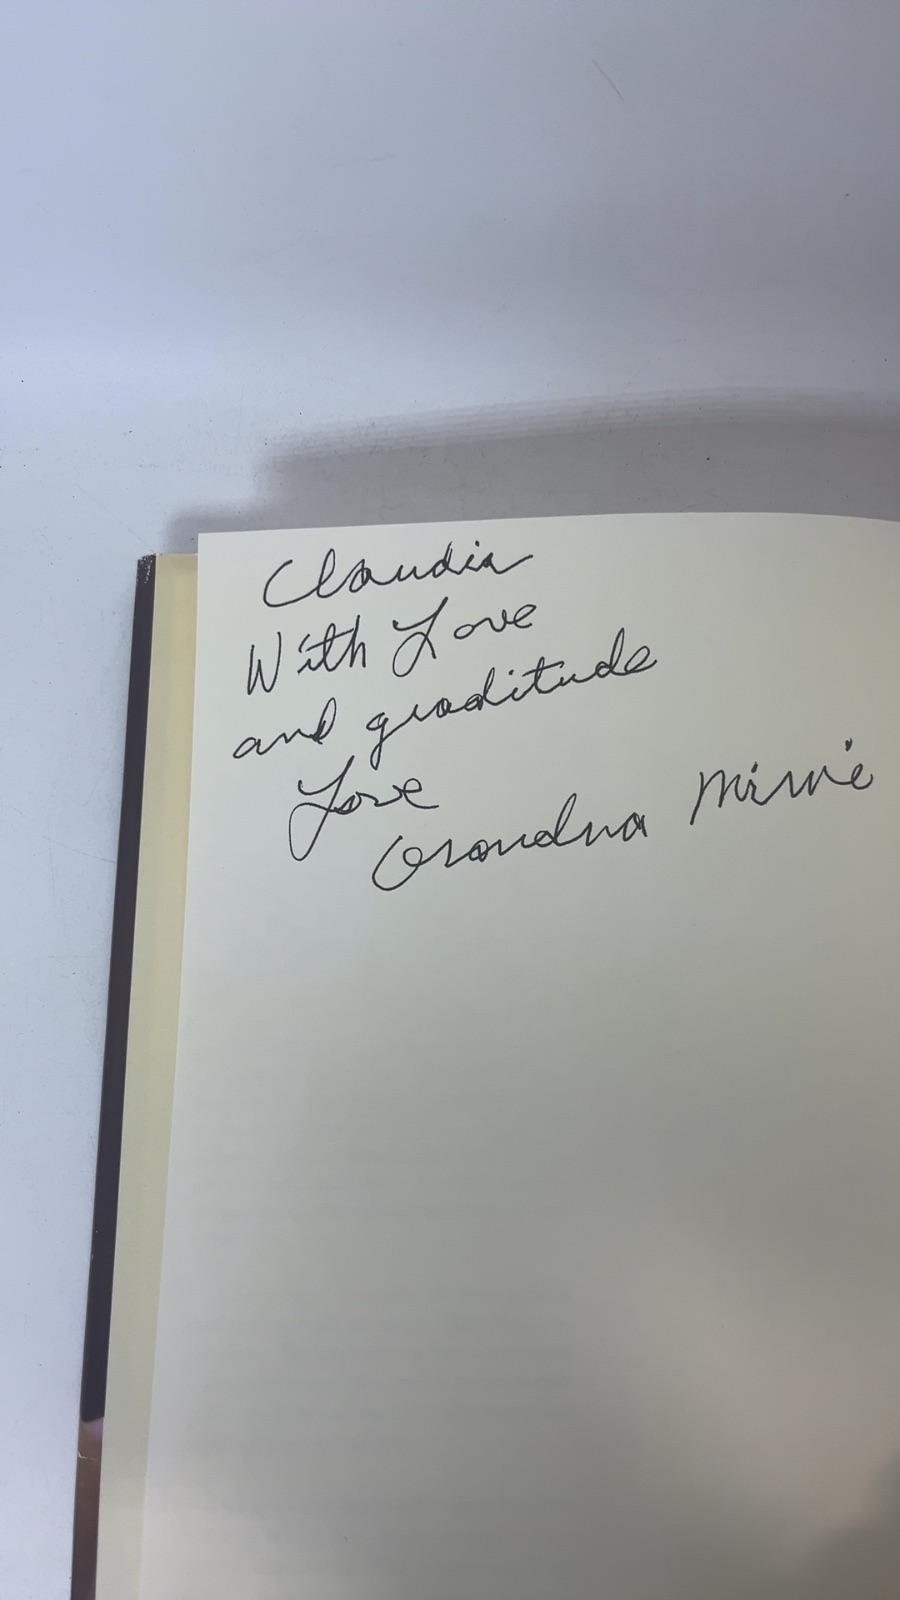 Claudia
With Love
and graditude
Love
Grandma Minnie